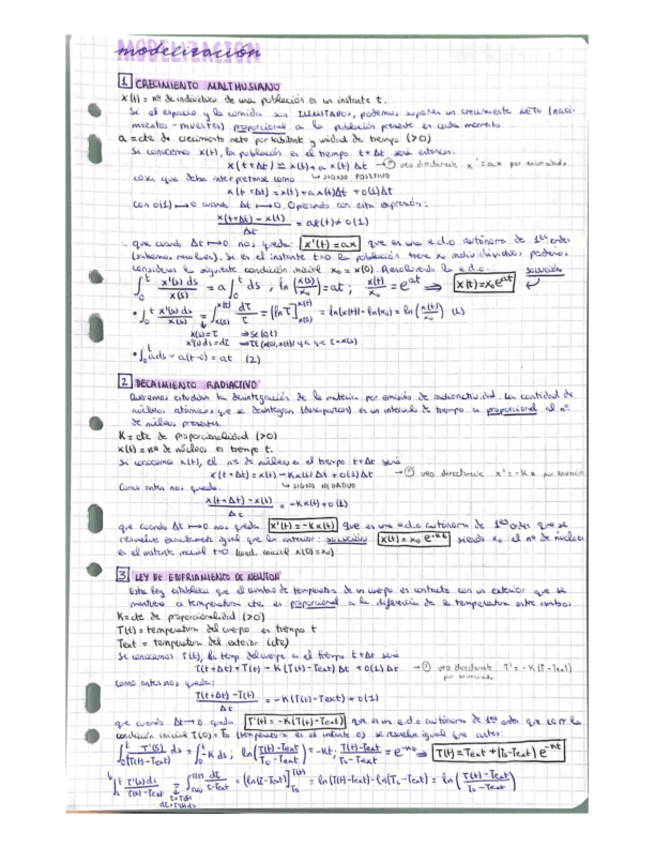 MODELIZACION
modelización
1 CRECIMIENTO MALTHUSIANO
x(t) = nº de individuos de una población en un instante t.
Si el espacio y la comida son ILIMITADOS, podemos suponer un crecimiento NETO (naci-
mientos - muertes) proporcional a la población presente en cada momento
a = cte de crecimiento neto por habitante y unidad de tiempo (>0)
Si conocemos x(t), la población en el tiempo t+Δt será entonces:
x(t+Δt) ≅ x(t) + a x(t) Δt → veo directamente x' = ax por enunciado
cosa que debe interpretarse como ↳ SIGNO POSITIVO
x(t+Δt) = x(t) + a x(t)Δt + o(1)Δt
con o(1) → 0 cuando Δt → 0. Operando con esta expresión:
x(t+Δt) - x(t) / Δt = ax(t) + o(1)
que cuando Δt → 0 nos queda: x'(t) = ax que es una e.d.o autónoma de 1er orden
(sabemos resolver). Si en el instante t=0 la población tiene x₀ individuos, podemos
considerar la siguiente condición inicial x₀ = x(0). Resolviendo la e.d.o. SOLUCIÓN
∫₀ᵗ x'(s) ds / x(s) = a ∫₀ᵗ ds ; ln (x(t)/x₀) = at ; x(t)/x₀ = e^at ⇒ x(t) = x₀e^at
• ∫₀ᵗ x'(s) ds / x(s) = ∫ dτ/τ = [ln τ] = ln(x(t)) - ln(x₀) = ln (x(t)/x₀) (1)
x(s) = τ
x'(s) ds = dτ
• ∫₀ᵗ a ds = a(t-0) = at (2)
2 DECAIMIENTO RADIACTIVO
Queremos estudiar la desintegración de la materia por emisión de radioactividad. La cantidad de
núcleos atómicos que se desintegran (desaparecen) en un intervalo de tiempo es proporcional al nº
de núcleos presentes
K = cte de proporcionalidad (>0)
x(t) = nº de núcleos en tiempo t.
Si conocemos x(t), el nº de núcleos en el tiempo t+Δt será
x(t+Δt) = x(t) - Kx(t) Δt + o(1)Δt → veo directamente x' = -Kx por enunciado
Como antes nos queda: ↳ SIGNO NEGATIVO
x(t+Δt) - x(t) / Δt = -Kx(t) + o(1)
que cuando Δt → 0 nos queda x'(t) = -Kx(t) que es una e.d.o autónoma de 1er orden que se
resuelve exactamente igual que la anterior: solución x(t) = x₀ e^-Kt siendo x₀ el nº de núcleos
en el instante inicial t=0 (cond. inicial x(0)=x₀)
3 LEY DE ENFRIAMIENTO DE NEWTON
Esta ley establece que el cambio de temperatura de un cuerpo en contacto con un exterior que se
mantiene a temperatura cte es proporcional a la diferencia de la temperatura entre ambos
K = cte de proporcionalidad (>0)
T(t) = temperatura del cuerpo en tiempo t
Text = temperatura del exterior (cte)
Si conocemos T(t), la temp del cuerpo en el tiempo t+Δt será
T(t+Δt) = T(t) - K(T(t)-Text) Δt + o(1) Δt → veo directamente T' = -K(T-Text)
por enunciado
como antes nos queda:
T(t+Δt) - T(t) / Δt = -K(T(t)-Text) + o(1)
que cuando Δt → 0 queda T'(t) = -K(T(t)-Text) que es una e.d.o autónoma de 1er orden que con la
condición inicial T(0) = T₀ (temperatura en el instante 0) se resuelve igual que antes:
∫₀ᵗ T'(s) / (T(t)-Text) ds = ∫₀ᵗ -K ds ; ln (T(t)-Text / T₀-Text) = -Kt ; T(t)-Text / T₀-Text = e^-Kt ⇒ T(t) = Text + (T₀-Text) e^-Kt
∫₀ᵗ T'(s) ds / T(t)-Text = ∫ dτ / τ-Text = [ln(τ-Text)] = ln(T(t)-Text) - ln(T₀-Text) = ln (T(t)-Text / T₀-Text)